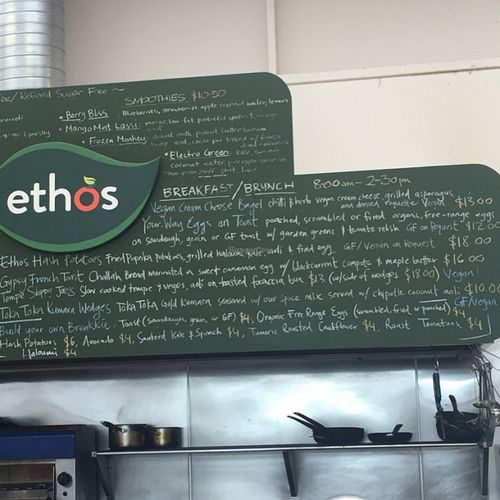 Refined Sugar Free ~
SMOOTHIES $10.50
• Berry Bliss Blueberries, strawberries, apple, coconut water, lemon
• Mango Mint Lassi: mango, low fat probiotic yoghurt, orange
• Frozen Monkey:
• Electro Green: kale,
coconut water, pineapple
ethos
BREAKFAST/BRUNCH 8:00am - 2-30pm
Vegan Cream Cheese Bagel chilli & herb vegan cream cheese, grilled asparagus and dressed Vegan $13.00
Your Way Eggs on Toast poached, scrambled or fried organic, free-range eggs
on sourdough, grain or GF toast w/ garden greens & tomato relish GF on Request $12.00
Ethos Hash Potatoes Fried Paprika Potatoes, grilled halloumi, kale, aioli & fried egg GF/Vegan on Request $18.00
Gypsy French Toast Challah Bread marinated in sweet cinnamon egg w/ blackcurrant compote & maple butter $16.00
Tempe Sloppy Joes Slow cooked tempe & veges, aioli on toasted focaccia bun $13 (w/ side of wedges $18.00) Vegan!
Toka Toka Kumara Wedges Toka Toka Gold Kumara seasoned w/ our spice mix served w/ chipotle coconut aoli $10.00
GF/Vegan
Build your own Breakkie: Toast (sourdough, grain, or GF) $4, Organic Free Range Eggs (scrambled, fried, or poached) $4,
Hash Potatoes $6, Avocado $4, Sauteed Kale & Spinach $4, Tumeric Roasted Cauliflower $4, Roast Tomatoes, $4,
Haloumi $4